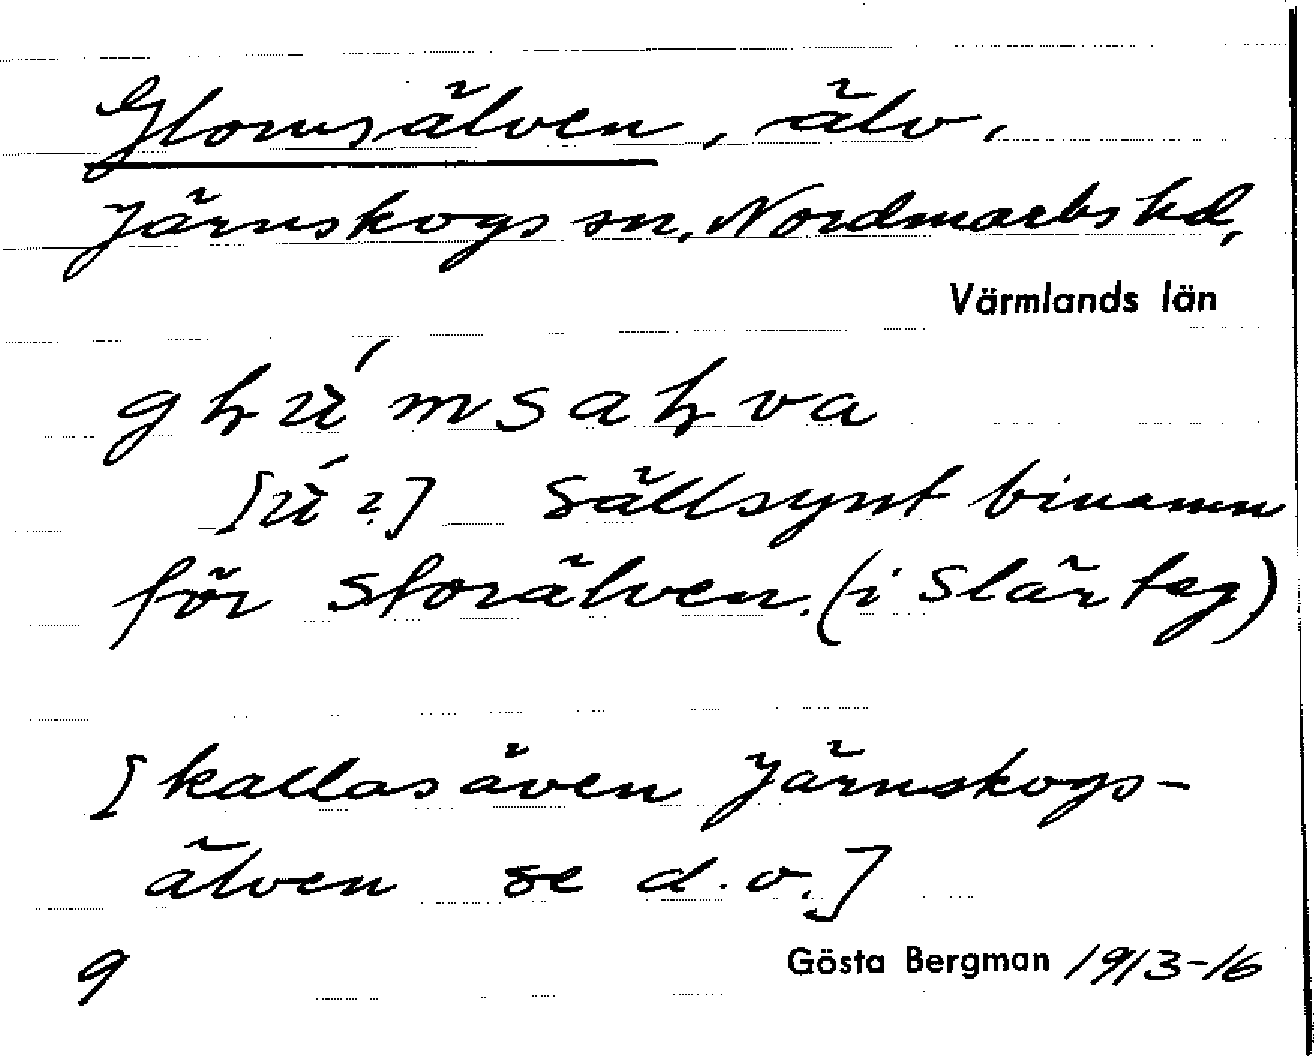 Glomsälven, älv.
Järnskogs sn, Nordmarks hd,
Värmlands län
Sällsynt binamn
för Storälven. (i Slärteg)
[kallas även Järnskogs-
älven se d.o.]
9 Gösta Bergman 1913-16